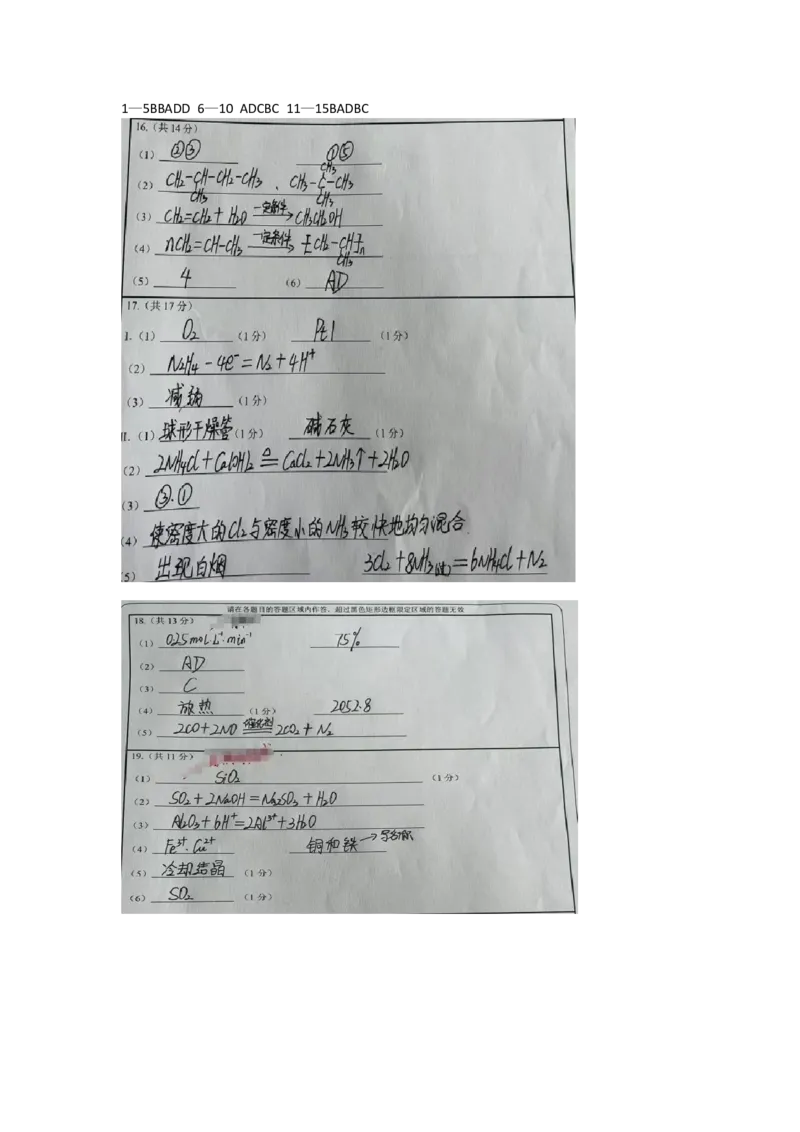 1—5BBADD 6—10 ADCBC 11—15BADBC
16.（共14分）
（1） ②③ ①⑤
（2） CH₂-CH-CH₂-CH₃ 、 CH₃-C-CH₃
CH₃ CH₃ CH₃
（3） CH₂=CH₂ + H₂O 一定条件→ CH₃CH₂OH
（4） nCH₂=CH-CH₃ 一定条件→ ⁅CH₂-CH⁆n
CH₃
（5） 4 （6） AD
17.（共17分）
I.（1） O₂ （1分） Pt1 （1分）
（2） N₂H₄ - 4e⁻ = N₂ + 4H⁺
（3） 减弱 （1分）
II.（1） 球形干燥管 （1分） 碱石灰 （1分）
（2） 2NH₄Cl + Ca(OH)₂ ≜ CaCl₂ + 2NH₃↑ + 2H₂O
（3） ③.①
（4） 使密度大的Cl₂与密度小的NH₃较快地均匀混合
（5） 出现白烟 3Cl₂ + 8NH₃(过) = 6NH₄Cl + N₂
请在各题目的答题区域内作答，超过黑色矩形边框限定区域的答题无效
18.（共13分）
（1） 0.25mol·L⁻¹·min⁻¹ 75%
（2） AD
（3） C
（4） 放热 （1分） 2052.8
（5） 2CO+2NO 催化剂== 2CO₂ + N₂
19.（共11分）
（1） SiO₂ （1分）
（2） SO₂ + 2NaOH = Na₂SO₃ + H₂O
（3） Al₂O₃ + 6H⁺ = 2Al³⁺ + 3H₂O
（4） Fe³⁺. Cu²⁺ 铜和铁 → 写名称
（5） 冷却结晶 （1分）
（6） SO₂ （1分）